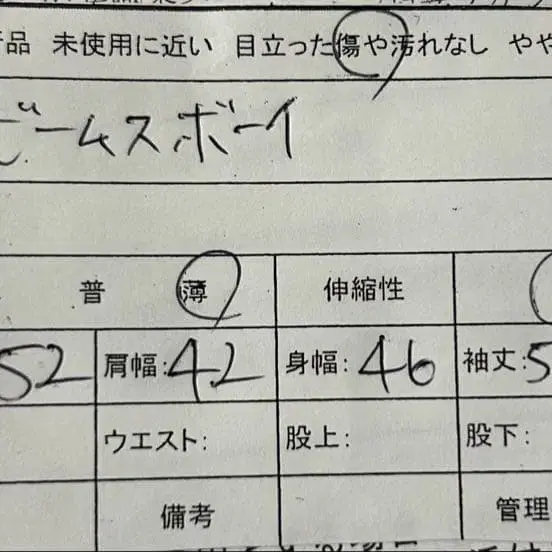 品 未使用に近い 目立った傷や汚れなし やや
ビームスボーイ
普 薄 伸縮性
52 肩幅:42 身幅:46 袖丈:5
ウエスト: 股上: 股下:
備考 管理